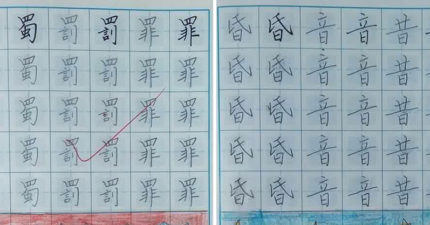 蜀罚罚罪罪
蜀罚罚罪罪
蜀罚罚罪罪
蜀罚罚罪罪
蜀罚罚罪罪
昏昏音音昔
昏昏音音昔
昏昏音音昔
昏昏音音昔
昏昏音音昔